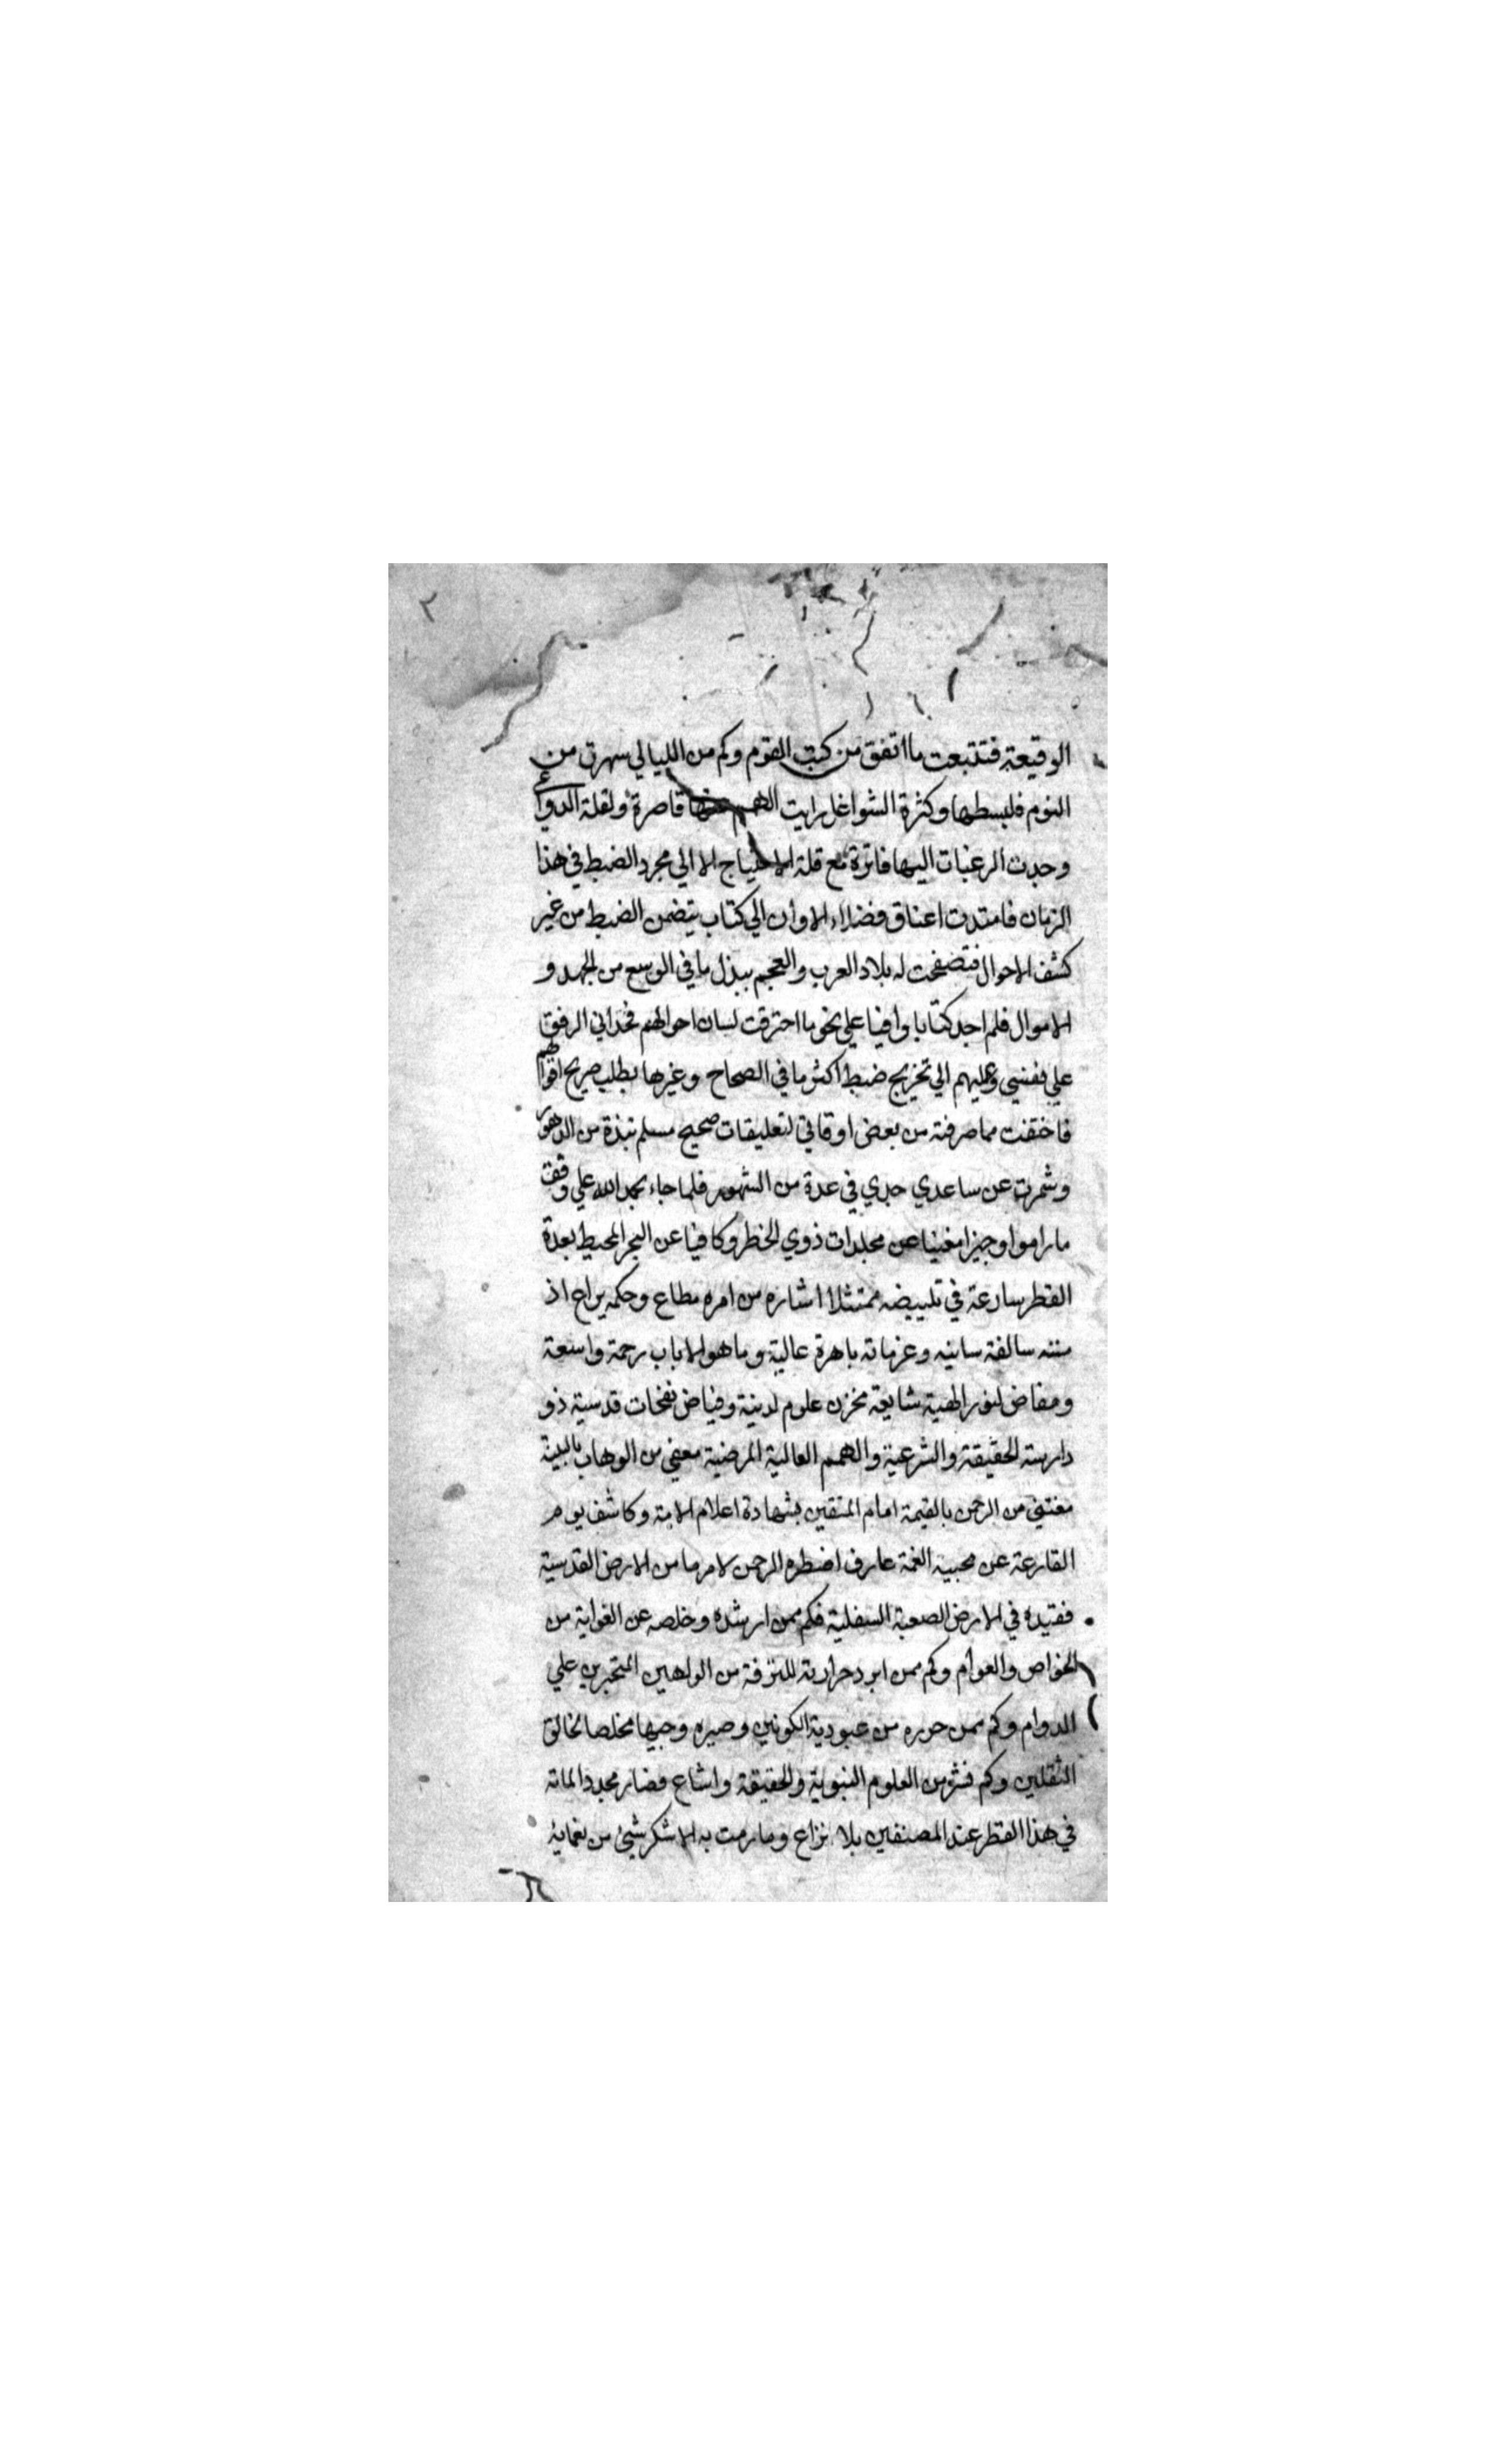 ٢
الوقيعة فتتبعت ما اتفق من كتب القوم وكم من الليالي سهرت من
النوم فلبسطها وكثرة الشواغل رايت الهمم عنها قاصرة ولقلة الدواعي
وجدت الرغبات اليها فاترة مع قلة الاحتياج الا الي مجرد الضبط في هذا
الزمان فامتدت اعناق فضلاء الاوان الي كتاب يتضمن الضبط من غير
كشف الاحوال فتصفحت له بلاد العرب والعجم ببذل ما في الوسع من الجهد و
الاموال فلم اجد كتابا وافيا علي نحو ما احترقت لسان احوالهم فحداني الرفق
علي نفسي وعليهم الي تخريج ضبط اكثر ما في الصحاح وغيرها بطلب صريح اقوالهم
فاختفت مما صرفته من بعض اوقاتي لتعليقات صحيح مسلم نبذة من الدهور
وشمرت عن ساعدي جدي في عدة من الشهور فلما جاء بحمد الله علي وفق
ما راموا وجيزا مغنيا عن مجلدات ذوي الخطر وكافيا عن البحر المحيط بعدة
القطر سارعة في تلبيضه ممتثلا اشاره من امره مطاع وحكمه يراع اذ
مننه سالفة سانيه وعزماته باهرة عالية وما هو الا باب رحمة واسعة
ومفاض لنور الهية شايعة مخزن علوم لدنية وفياض نفحات قدسية ذو
دارسته الحقيقة والشرعية والهمم العالية المرضية معفي من الوهاب بالبينة
مغتني من الرحمن بالقيمة امام المتقين بشهادة اعلام الامة وكاشف يوم
القارعة عن محبيه الغمة عارف اضطره الرحمن لامر ما من الارض القدسية
فقيده في الارض الصعبة السفلية فكم ممن ارشده وخلصه عن الغواية من
الخواص والعوام وكم ممن ابرد حرارته للنزفة من الولهين المتحيرين علي
الدوام وكم ممن حرره من عبودية الكونين وصيره وجيها مخلصا لخالق
الثقلين وكم نشر من العلوم النبوية والحقيقة واشاع فصار مجدد الماته
في هذا القطر عند المصنفين بلا نزاع وما رمت به الا شكر شئ من نعمايه